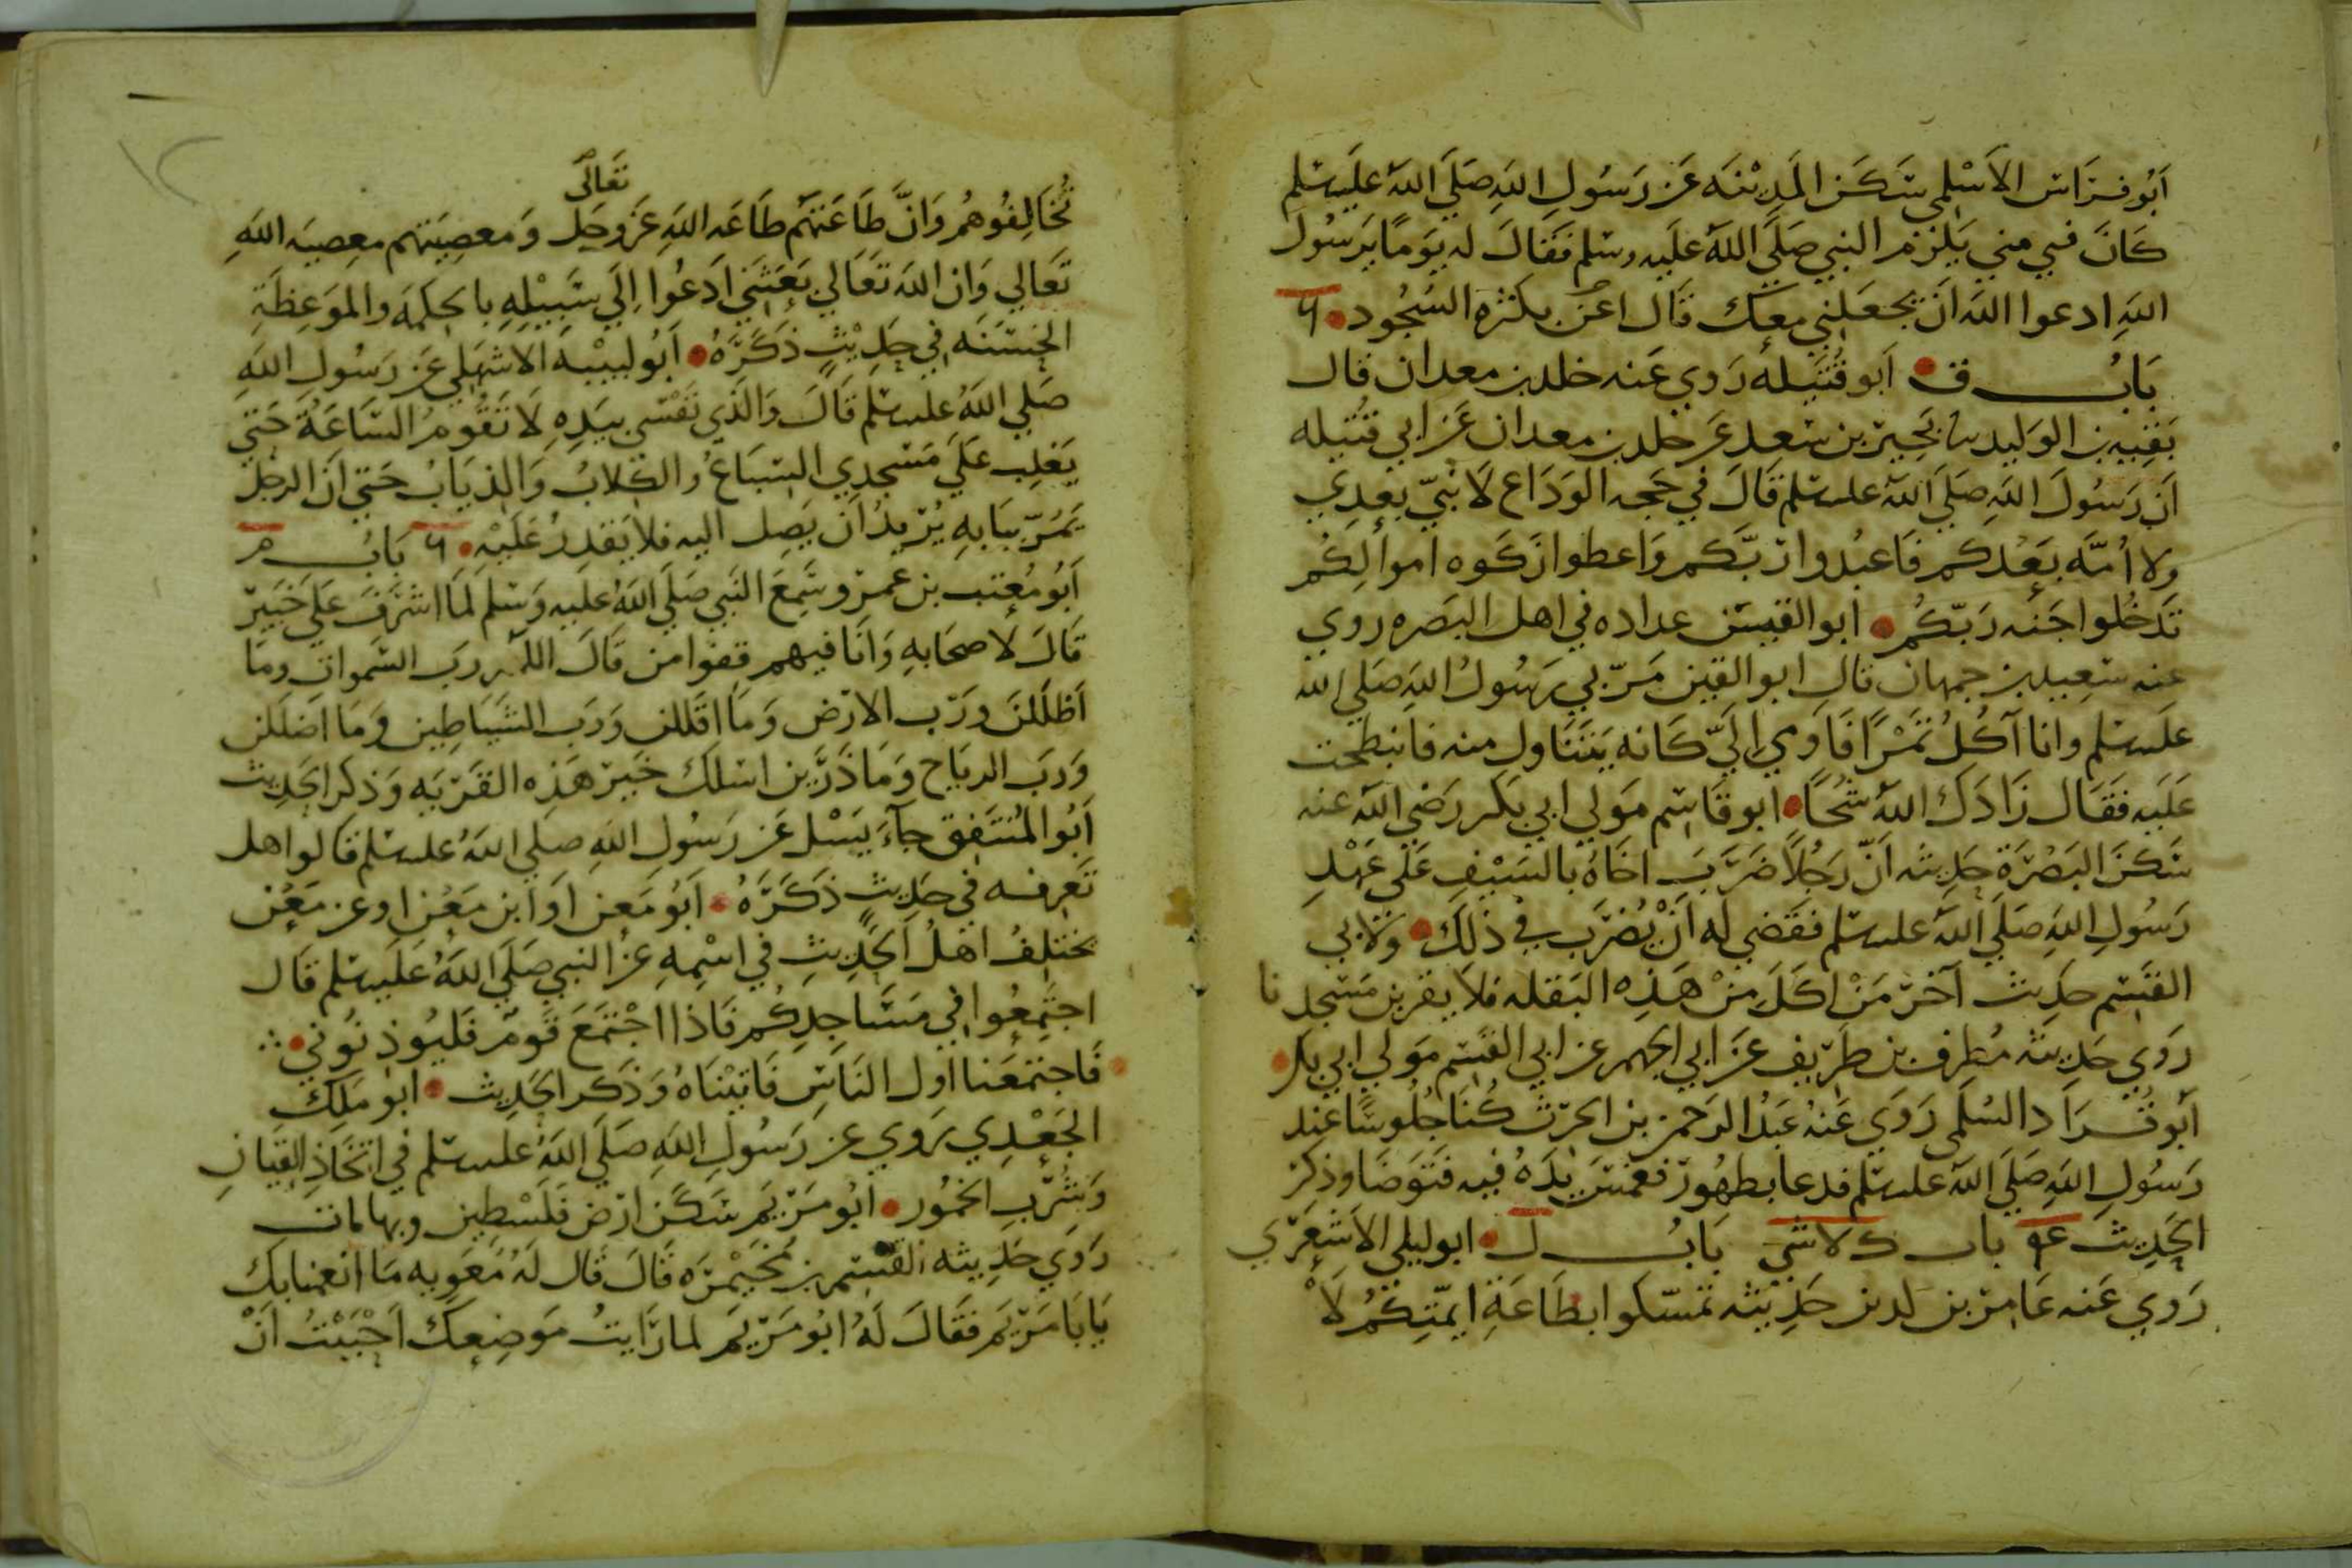 أبو فراس الأسلمي سكن المدينه عن رسول الله صلى الله عليه وسلم
كان فتى مني يلزم النبي صلى الله عليه وسلم فقال له يوما يرسول
الله ادعوا الله ان يجعلني معك قال اعن بكثره السجود
باب ق أبو قتيله روي عنه خلد بن معدان قال
بقيه بن الوليد بحير بن سعد عن خلد بن معدان عن ابي قتيله
ان رسول الله صلى الله عليه وسلم قال في حجه الوداع لا نبي بعدي
ولا أمه بعدكم فاعبدوا ربكم واعطوا زكوه اموالكم
تدخلوا جنه ربكم ابو القين عداده في اهل البصره روي
عنه سعيد بن جمهان قال ابو القين مر بي رسول الله صلى الله
عليه وسلم وانا آكل تمرا فاومي الي كانه يتناول منه فانبطحت
عليه فقال زادك الله شحا ابو قاسم مولي ابي بكر رضي الله عنه
سكن البصرة حديثه أن رجلا ضرب اخاه بالسيف على عهد
رسول الله صلى الله عليه وسلم فقضي له أن يضرب في ذلك ولابي
القسم حديث آخر من اكل من هذه البقله فلا يقربن مسجدنا
روي حديثه مطرف بن طريف عن ابي الجهم عن ابي القسم مولي ابي بكر
أبو قراد السلمي روي عنه عبد الرحمن بن الحرث كنا جلوسا عند
رسول الله صلى الله عليه وسلم فدعا بطهور فغمس يده فيه فتوضا وذكر
الحديث باب ك لا شي باب ل ابو ليلي الأشعري
روي عنه عامر بن لدين حديثه تمسكوا بطاعة ايمتكم لا
تعالى
تخالفوهم وان طاعتهم طاعه الله عز وجل ومعصيتهم معصيه الله
تعالي وان الله تعالي بعثني ادعوا الي سبيله بالحكمه والموعظة
الحسنه في حديث ذكره أبو لبيبه الاشهلي عن رسول الله
صلي الله عليه وسلم قال والذي نفسي بيده لا تقوم الساعة حتي
يغلب علي مسجدي السباع والكلاب والذياب حتي ان الرجل
يمر ببابه يريد ان يصل اليه فلا يقدر عليه باب م
أبو معتب بن عمرو سمع النبي صلى الله عليه وسلم لما اشرف علي خيبر
قال لاصحابه وانا فيهم قفوا من قال اللهم رب السموات وما
أظللن ورب الارض وما اقللن ورب الشياطين وما اضللن
ورب الرياح وما ذرين اسلك خير هذه القريه وذكر الحديث
أبو المنتفق جآء يسل عن رسول الله صلي الله عليه وسلم قالوا هل
تعرفه في حديث ذكره أبو معن او ابن معن او عن معن
يختلف اهل الحديث في اسمه عن النبي صلى الله عليه وسلم قال
اجتمعوا في مساجدكم فاذا اجتمع قوم فليوذنوني
فاجتمعنا اول الناس فاتيناه وذكر الحديث ابو ملك
الجعدي روي عن رسول الله صلى الله عليه وسلم في اتخاذ القيان
وشرب الخمور أبو مريم سكن ارض فلسطين وبها مات
روي حديثه القسم بن مخيمره قال قال له معويه ما انعمنا بك
يابا مريم فقال له ابو مريم لما رايت موضعك احببت أن